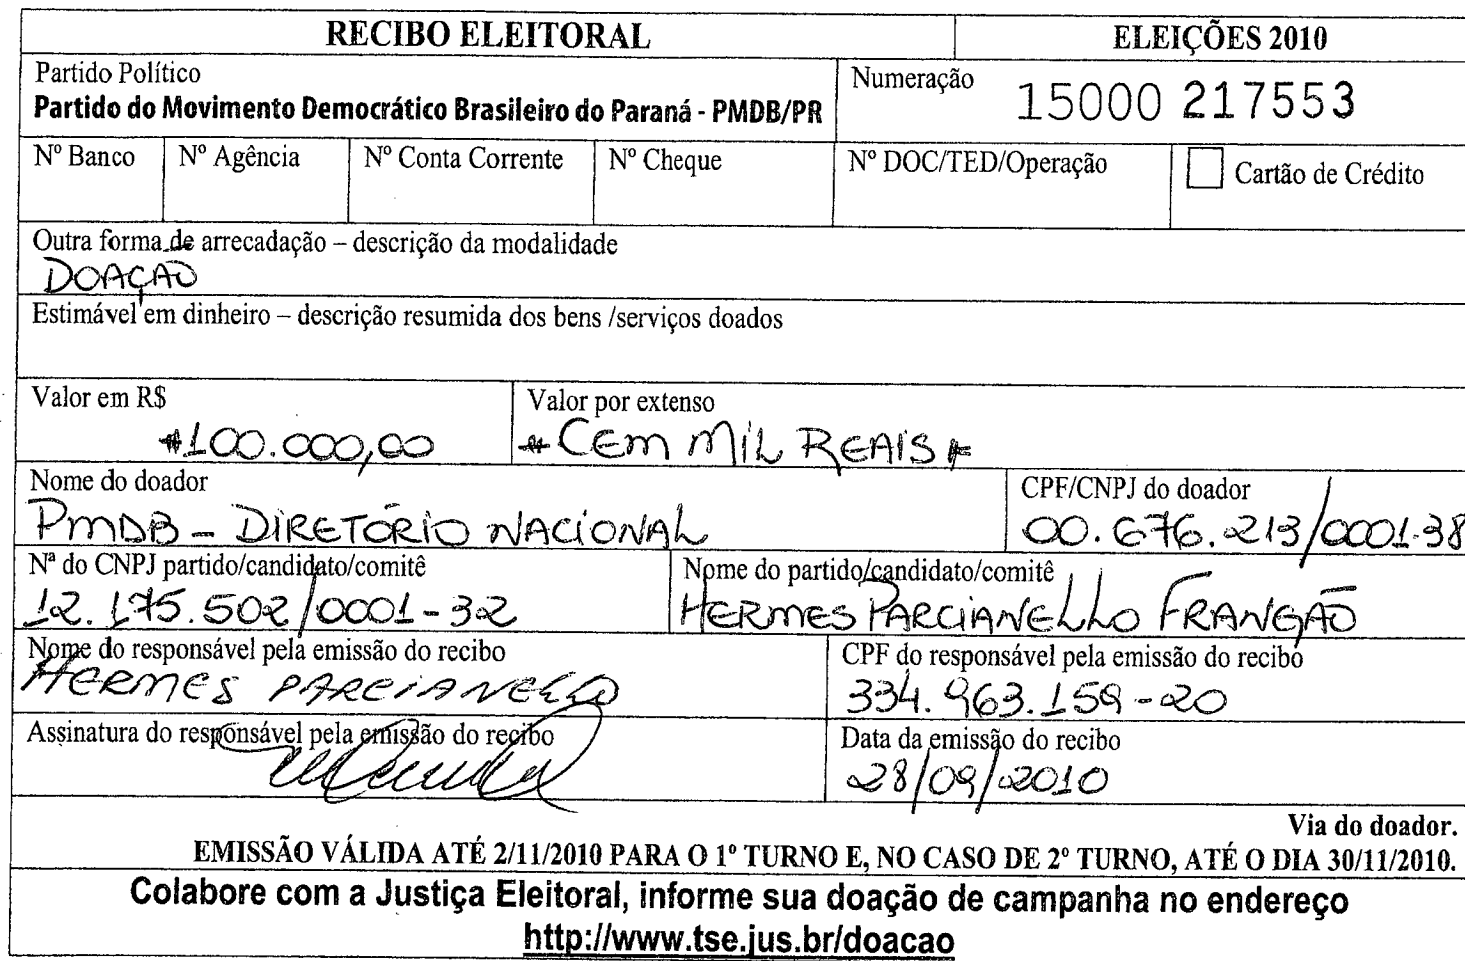 RECIBO ELEITORAL ELEIÇÕES 2010
Partido Político
Partido do Movimento Democrático Brasileiro do Paraná - PMDB/PR
Numeração 15000 217553
Nº Banco Nº Agência Nº Conta Corrente Nº Cheque Nº DOC/TED/Operação Cartão de Crédito
Outra forma de arrecadação – descrição da modalidade
DOAÇÃO
Estimável em dinheiro – descrição resumida dos bens /serviços doados
Valor em R$ Valor por extenso
#100.000,00 # CEM MIL REAIS #
Nome do doador CPF/CNPJ do doador
PMDB - DIRETÓRIO NACIONAL 00.676.213/0001-38
Nª do CNPJ partido/candidato/comitê Nome do partido/candidato/comitê
12.175.502/0001-32 HERMES PARCIANELLO FRANGÃO
Nome do responsável pela emissão do recibo CPF do responsável pela emissão do recibo
HERMES PARCIANELLO 334.963.159-20
Assinatura do responsável pela emissão do recibo Data da emissão do recibo
28/09/2010
Via do doador.
EMISSÃO VÁLIDA ATÉ 2/11/2010 PARA O 1º TURNO E, NO CASO DE 2º TURNO, ATÉ O DIA 30/11/2010.
Colabore com a Justiça Eleitoral, informe sua doação de campanha no endereço
http://www.tse.jus.br/doacao